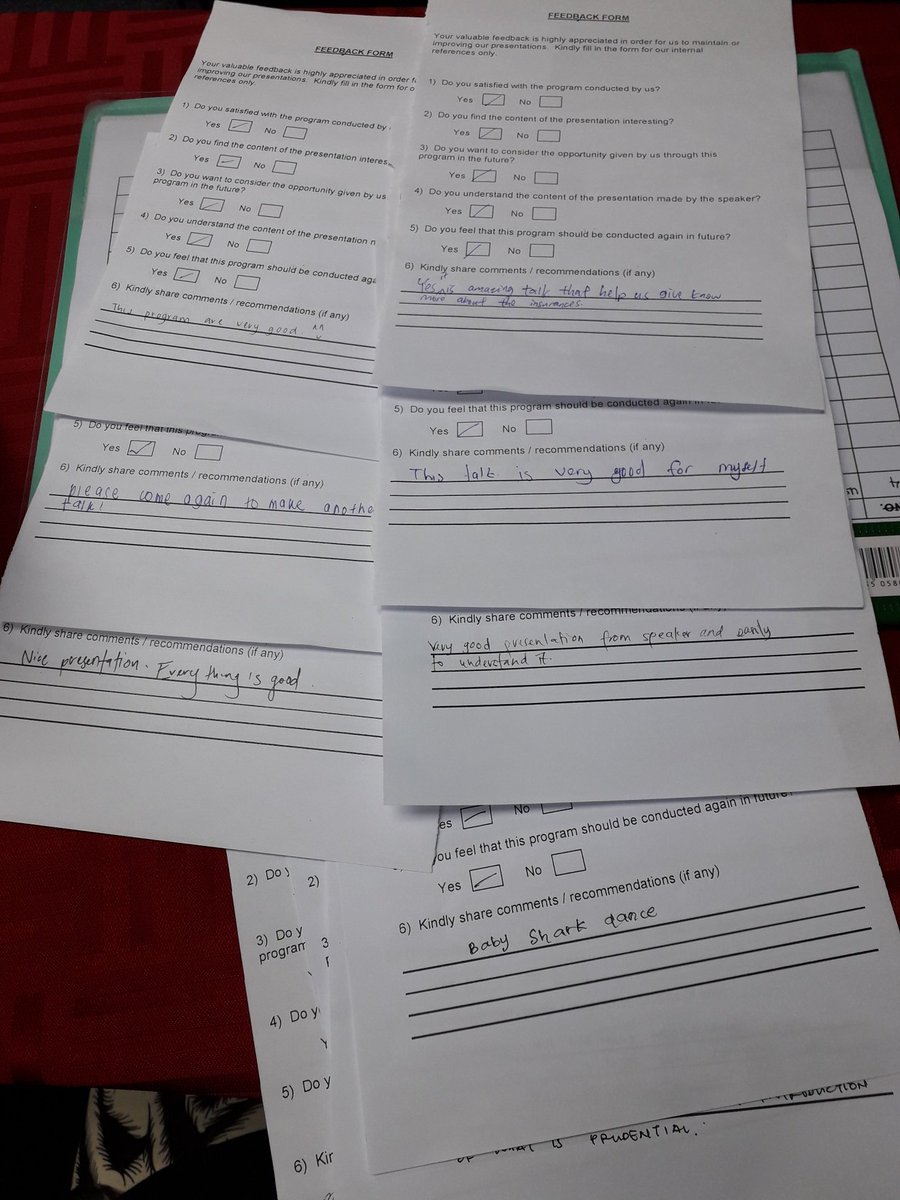 FEEDBACK FORM
Your valuable feedback is highly appreciated in order f
improving our presentations. Kindly fill in the form for o
references only.
1) Do you satisfied with the program conducted by
Yes No
2) Do you find the content of the presentation interes
Yes No
3) Do you want to consider the opportunity given by us
program in the future?
Yes No
4) Do you understand the content of the presentation
Yes No
5) Do you feel that this program should be conducted aga
Yes No
6) Kindly share comments / recommendations (if any)
This program are very good. ^^
FEEDBACK FORM
Your valuable feedback is highly appreciated in order for us to maintain or
improving our presentations. Kindly fill in the form for our internal
references only.
1) Do you satisfied with the program conducted by us?
Yes No
2) Do you find the content of the presentation interesting?
Yes No
3) Do you want to consider the opportunity given by us through this
program in the future?
Yes No
4) Do you understand the content of the presentation made by the speaker?
Yes No
5) Do you feel that this program should be conducted again in future?
Yes No
6) Kindly share comments / recommendations (if any)
Yes, it is amazing talk that help us give know
more about the insurances.
5) Do you feel that this progr
Yes No
6) Kindly share comments / recommendations (if any)
please come again to make anothe
talk!
5) Do you feel that this program should be conducted again in
Yes No
6) Kindly share comments / recommendations (if any)
This talk is very good for myself
6) Kindly share comments / recommendations (if any)
Nice presentation. Everything is good.
6) Kindly share comments / recommendations
Very good presentation from speaker and easily
to understand it.
es No
ou feel that this program should be conducted again in future?
Yes No
6) Kindly share comments / recommendations (if any)
Baby Shark dance
2) Do y
2)
3) Do y
program
3
4) Do y
5) Do y
6) Kir
OF WHAT IS PRUDENTIAL.
NO.
5 058